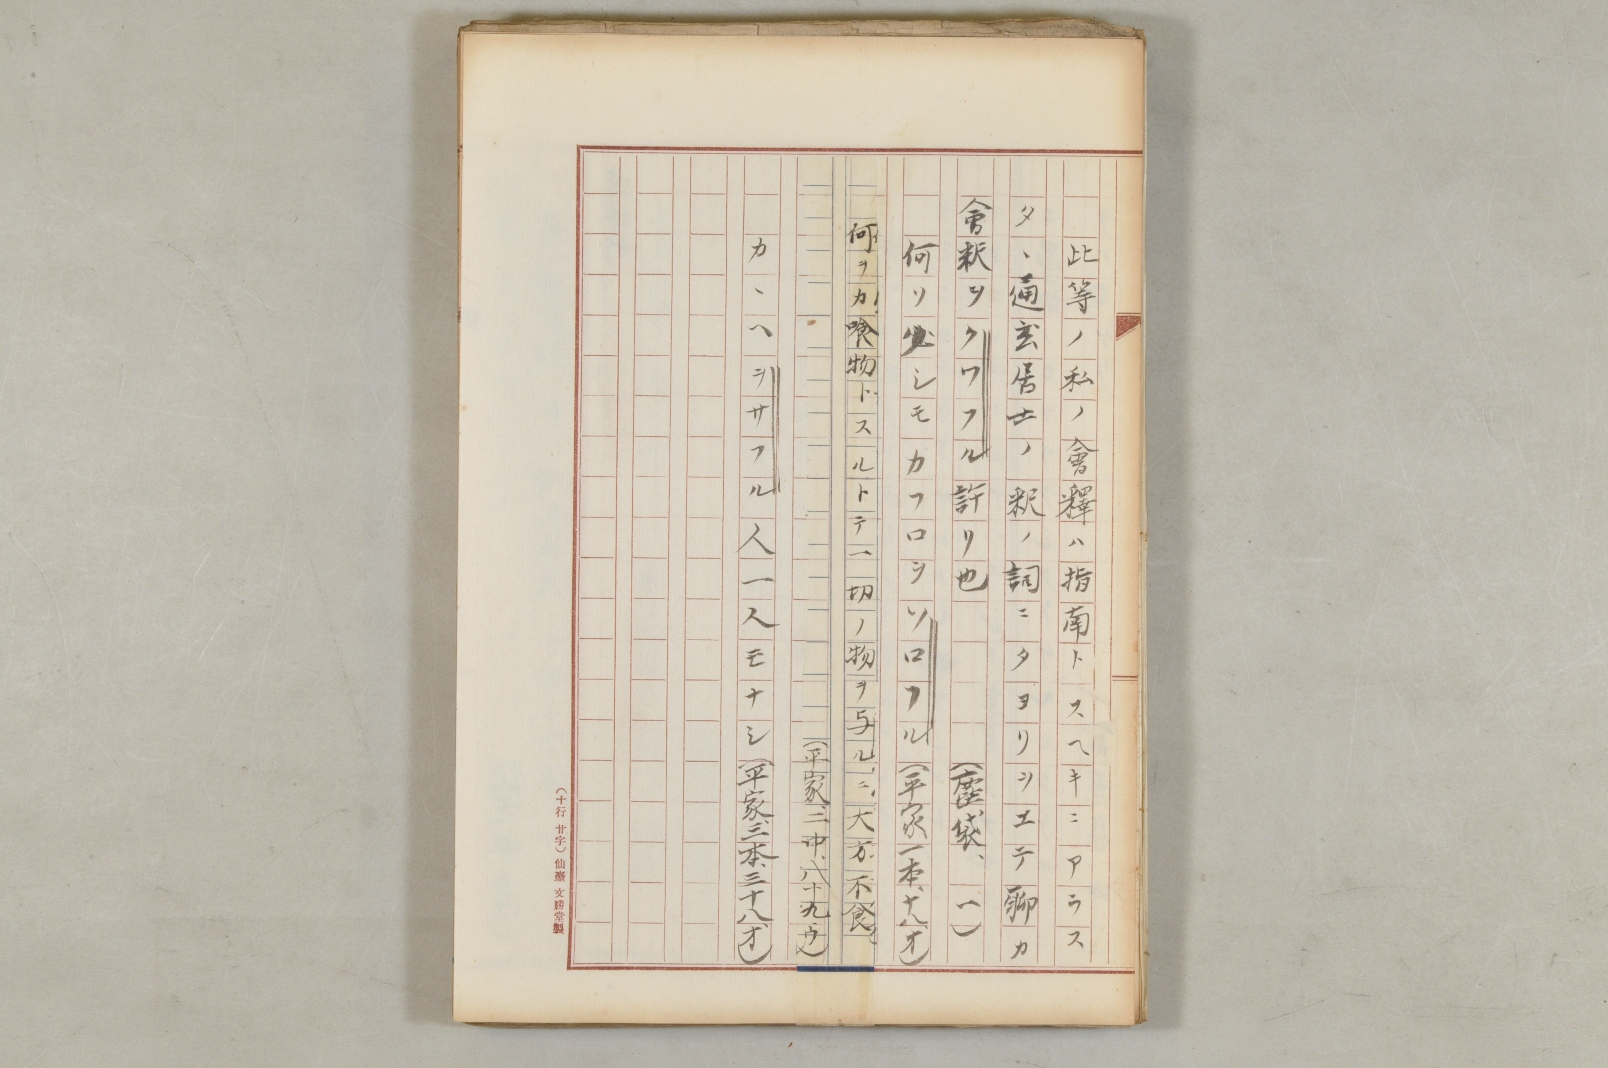 此等ノ私ノ會釋ハ指南トスヘキニアラス
タヽ通玄居士ノ釈ノ詞ニタヨリヲエテ聊カ
會釈ヲクワフル許リ也 (塵袋、一)
何ソ必シモカフロヲソロフル(平家一本、十八オ)
何ヲカ喰物トスルトテ一切ノ物ヲ与ルニ、大方不食
(平家、二中、八十九ウ)
カヽヘヲサフル人一人モナシ(平家、三本、三十八オ)
(十行 廿字) 仙臺 文勝堂製